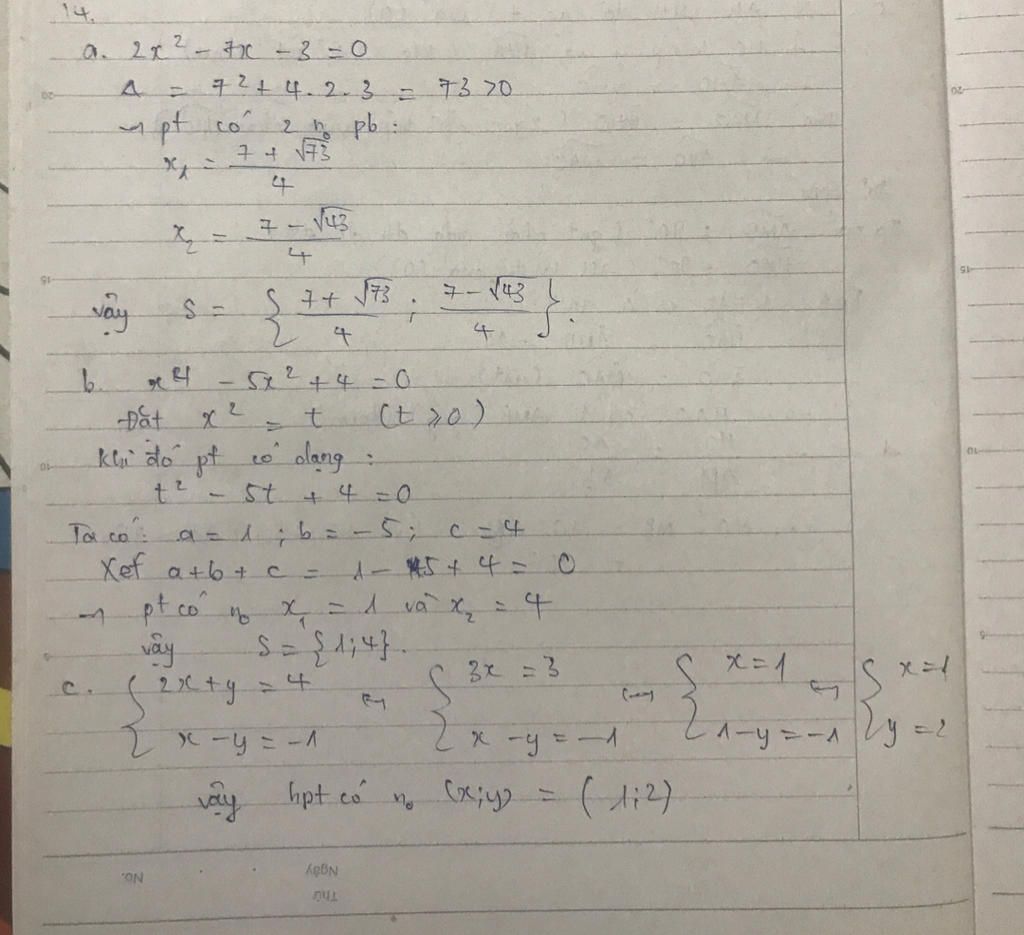 14.
a. 2x² - 7x - 3 = 0
Δ = 7² + 4. 2. 3 = 73 > 0
→ pt có 2 n₀ pb :
x₁ = (7 + √73)/4
x₂ = (7 - √73)/4
vậy S = { (7 + √73)/4 ; (7 - √73)/4 }.
b. x⁴ - 5x² + 4 = 0
Đặt x² = t (t ⩾ 0)
Khi đó pt có dạng :
t² - 5t + 4 = 0
Ta có : a = 1 ; b = -5 ; c = 4
Xét a + b + c = 1 - 5 + 4 = 0
→ pt có n₀ x₁ = 1 và x₂ = 4
vậy S = {1; 4}.
c. { 2x + y = 4 ; x - y = -1 ↔ { 3x = 3 ; x - y = -1 ↔ { x = 1 ; 1 - y = -1 ↔ { x = 1 ; y = 2
vậy hpt có n₀ (x; y) = (1; 2)
No.
Ngày
Thứ